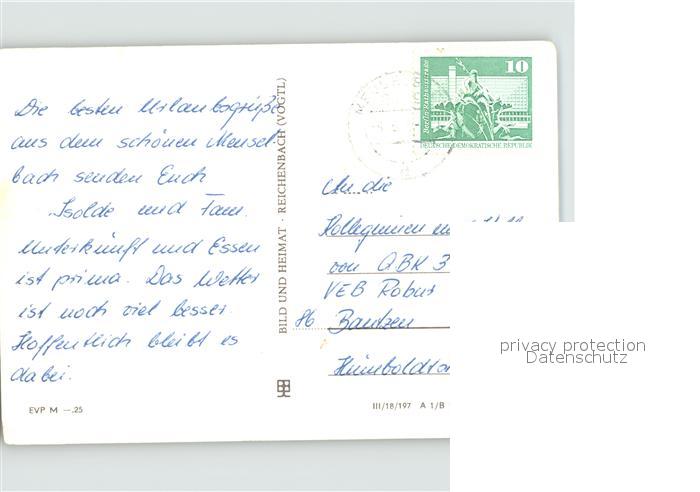 Die besten Urlaubsgrüße
aus dem schönen Mensel-
bach senden Euch
Isolde und Fam.
Unterkunft und Essen
ist prima. Das Wetter
ist noch viel besser.
Hoffentlich bleibt es
dabei.
EVP M —.25
BILD UND HEIMAT · REICHENBACH (VOGTL)
10
Berlin Rathausstraße
DEUTSCHE DEMOKRATISCHE REPUBLIK
An die
Kolleginnen
von QBK 3
VEB Robur
86 Bautzen
Humboldt
III/18/197 A 1/B
privacy protection
Datenschutz